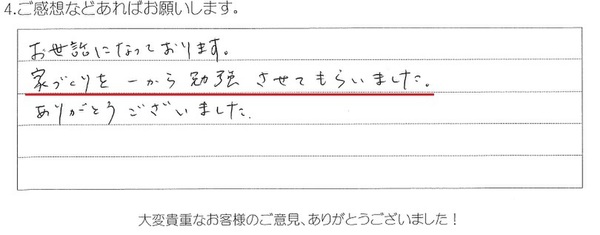 4.ご感想などあればお願いします。
お世話になっております。
家づくりを 一から 勉強 させて もらいました。
ありがとう ございました.
大変貴重なお客様のご意見、ありがとうございました！